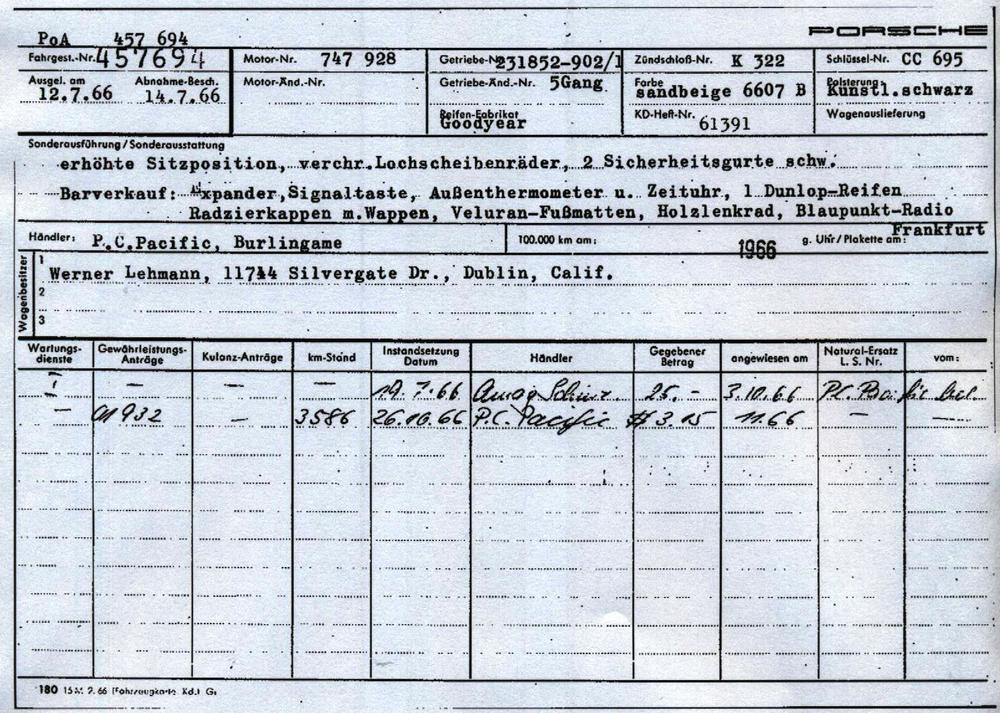 PoA 457 694 PORSCHE
Fahrgest.-Nr. 457694 Motor-Nr. 747 928 Getriebe-Nr. 231852-902/1 Zündschloß-Nr. K 322 Schlüssel-Nr. CC 695
Ausgel. am Abnahme-Besch. Motor-Änd.-Nr. Getriebe-Änd.-Nr. 5Gang Farbe Polsterung
12.7.66 14.7.66 sandbeige 6607 B Kunstl.schwarz
Reifen-Fabrikat KD-Heft-Nr. 61391 Wagenauslieferung
Goodyear
Sonderausführung / Sonderausstattung
erhöhte Sitzposition, verchr.Lochscheibenräder, 2 Sicherheitsgurte schw.
Barverkauf: xpander,Signaltaste, Außenthermometer u. Zeituhr, 1 Dunlop-Reifen
Radzierkappen m.Wappen, Veluran-Fußmatten, Holzlenkrad, Blaupunkt-Radio
Frankfurt
Händler: P.C.Pacific, Burlingame 100.000 km am: 1966 g. Uhr / Plakette am:
Wagenbesitzer
1 Werner Lehmann, 11744 Silvergate Dr., Dublin, Calif.
2
3
Wartungs-dienste Gewährleistungs-Anträge Kulanz-Anträge km-Stand Instandsetzung Datum Händler Gegebener Betrag angewiesen am Natural-Ersatz L. S. Nr. vom:
— — — — 19.7.66 Amag 25.- 3.10.66 P.C. Pacific
— 01932 — 3586 26.10.66 P.C. Pacific $ 3.15 11.66 — —
180 15 M. 2. 66 (Fahrzeugkarte Kd.) Gs